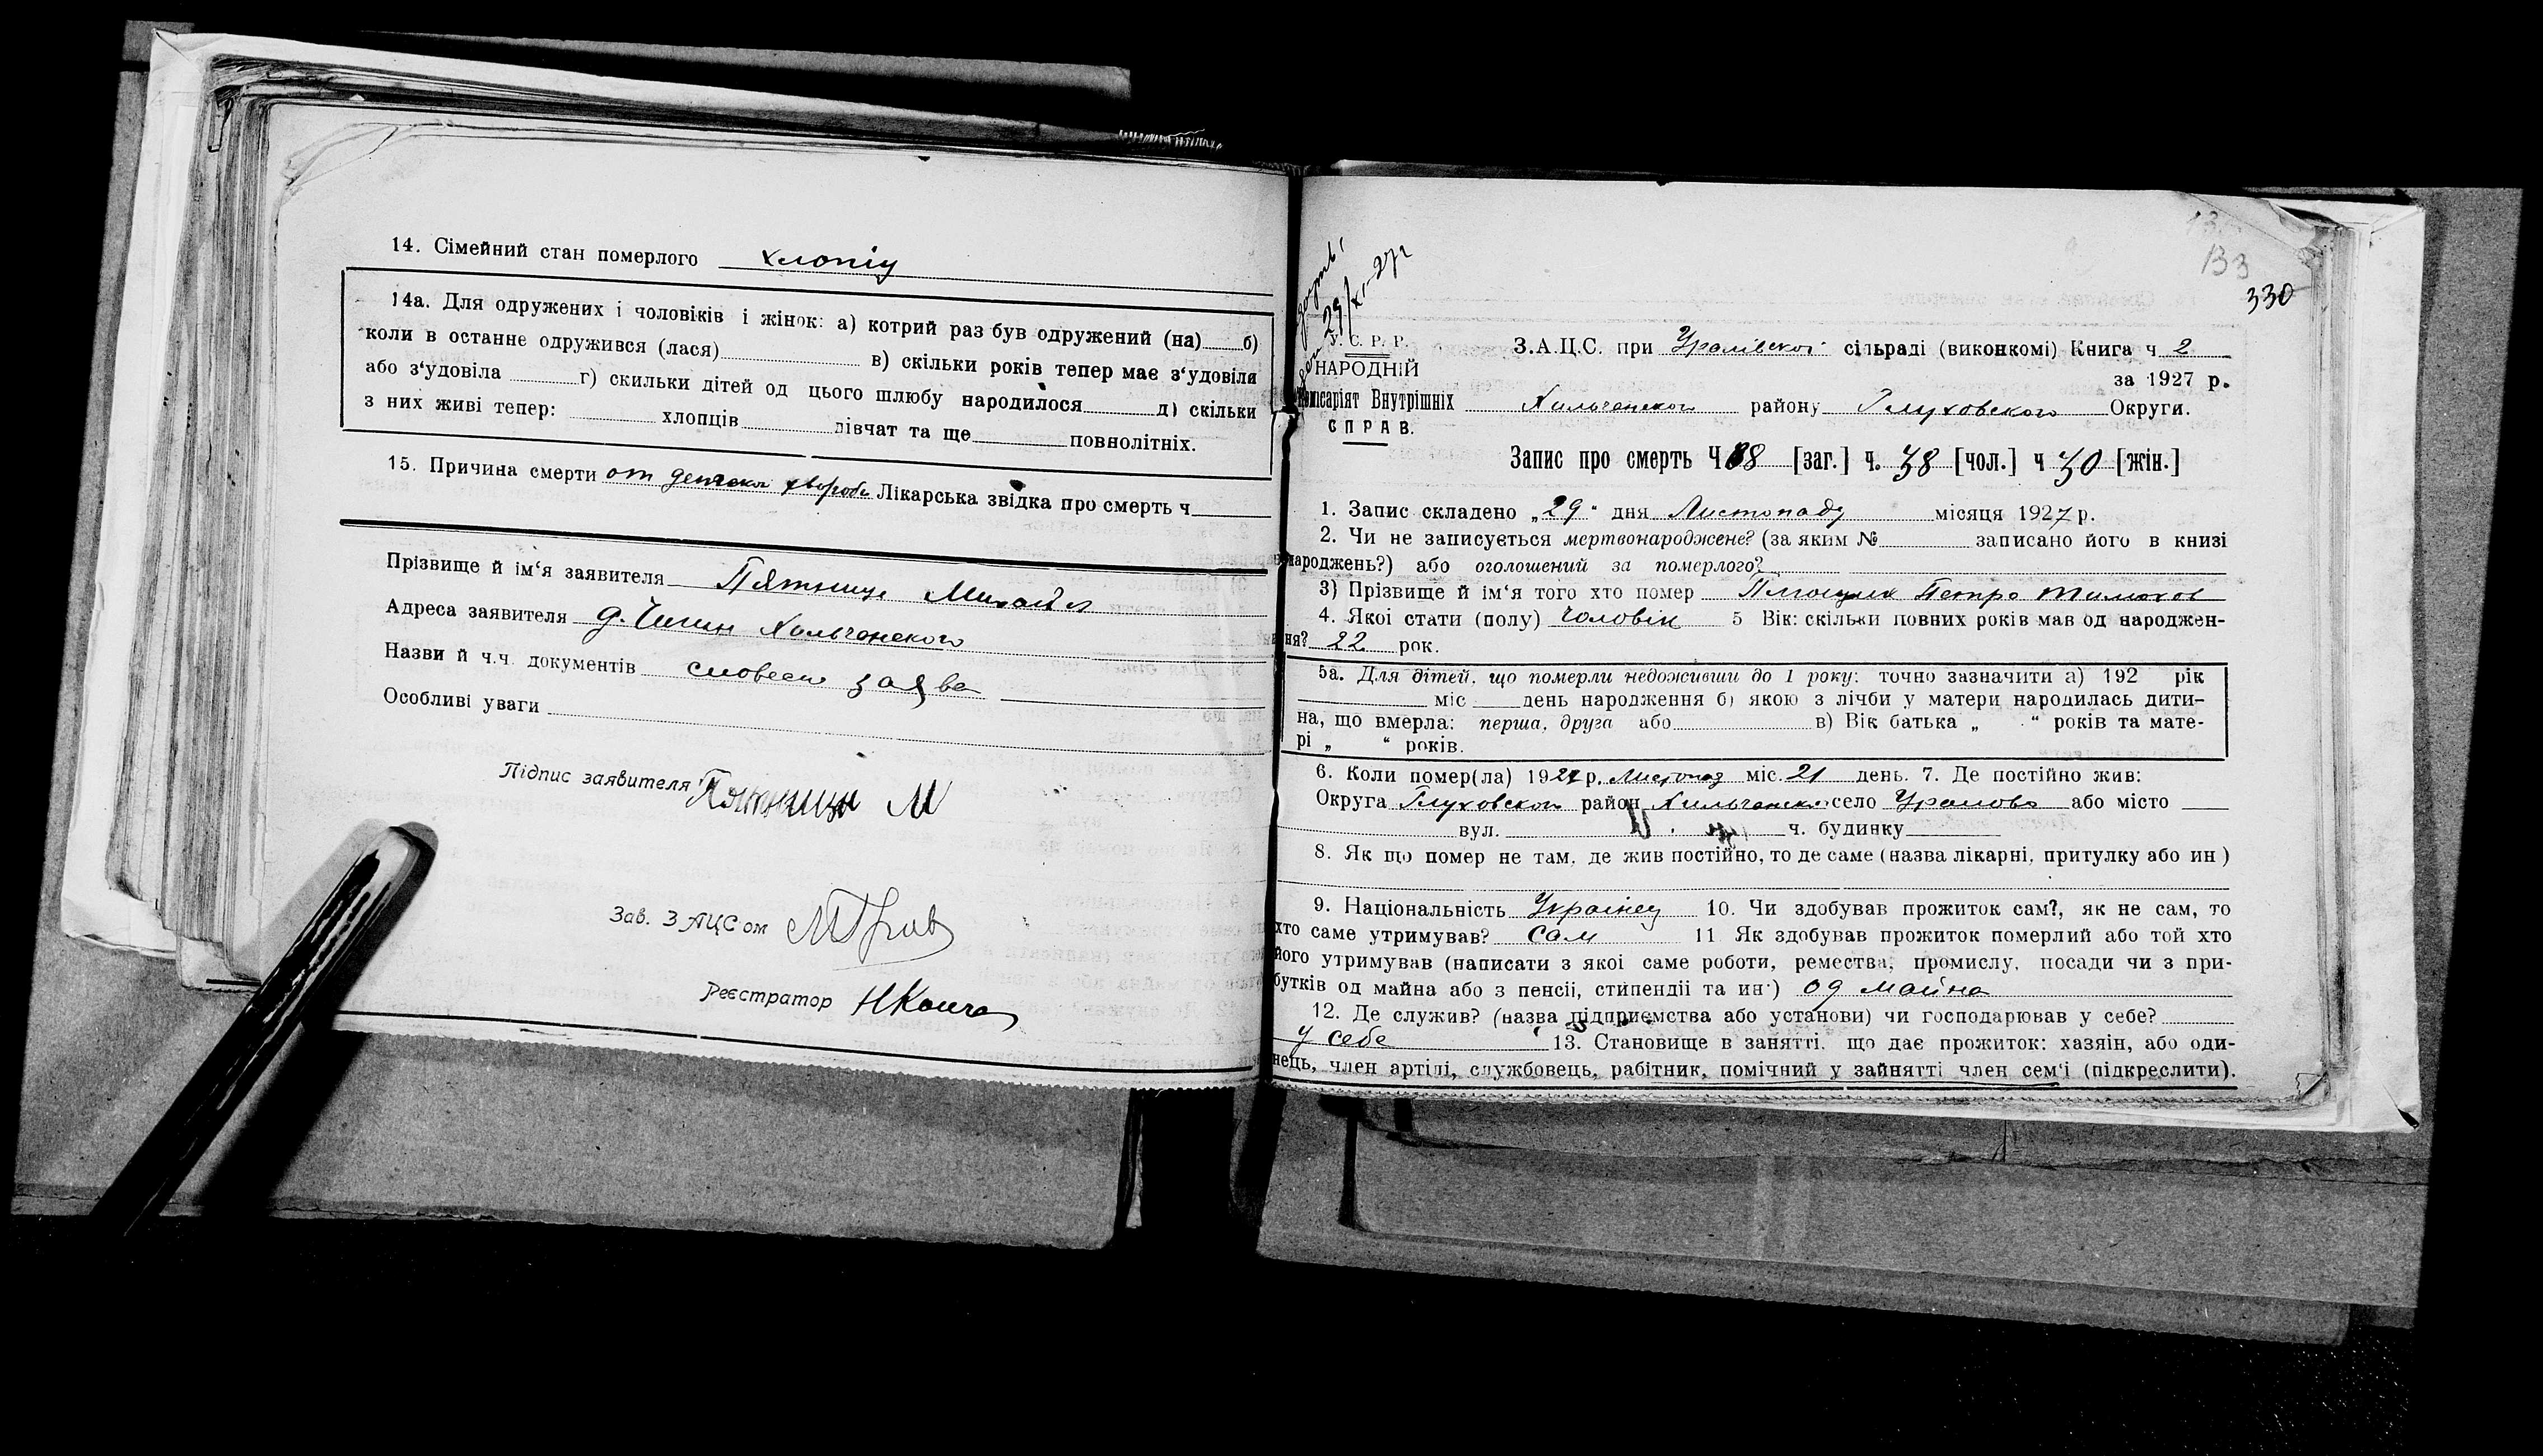 14. Сімейний стан померлого хлопіц
14а. Для одружених і чоловіків і жінок: а) котрий раз був одружений (на) б)
коли в останне одружився (лася) в) скільки років тепер має з‘удовіля
або з‘удовіла г) скильки дітей од цього шлюбу народилося д) скільки
з них живі тепер: хлопців дівчат та ще повнолітніх.
15. Причина смерти от хвороби Лікарська звідка про смерть ч
Прізвище й ім‘я заявителя Пятниця Михайл
Адреса заявителя д.
Назви й ч.ч. документів словесн заява
Особливі уваги
Підпис заявителя Пятница М
Зав. ЗАЦС‘ом
Реєстратор
133
330
29/XI-27р
У. С. Р. Р.
НАРОДНІЙ
Комісаріят Внутрішніх
СПРАВ.
З.А.Ц.С. при Уралівскої сільраді (виконкомі) Книга ч 2
за 1927 р.
Хильчанского району Глуховского Округи.
Запис про смерть Ч 88 [заг.] ч. 38 [чол.] ч 30 [жін.]
1. Запис складено „29“ дня Листопаду місяця 1927 р.
2. Чи не записується мертвонароджене? (за яким № записано його в книзі
народжень?) або оголошений за померлого?
3) Прізвище й ім‘я того хто помер Петро
4. Якої стати (полу) Чоловік 5 Вік: скільки повних років мав од народжен-
ня? 22 рок.
5а. Для дітей, що померли недоживши до 1 року: точно зазначити а) 192 рік
міс день народження б) якою з лічби у матери народилась дити-
на, що вмерла: перша, друга або в) Вік батька „ “ років та мате-
рі „ “ років.
6. Коли помер(ла) 1927 р. Листопад міс. 21 день. 7. Де постійно жив:
Округа Глуховской район Хильчанско село Уралово або місто
вул. ч. будинку
8. Як що помер не там, де жив постійно, то де саме (назва лікарні, притулку або ин )
9. Національність Українец 10. Чи здобував прожиток сам?, як не сам, то
хто саме утримував? Сам 11 Як здобував прожиток померлий або той хто
його утримував (написати з якої саме роботи, ремества, промислу, посади чи з при-
бутків од майна або з пенсії, стипендії та ин·) од майна
12. Де служив? (назва підприємства або установи) чи господарював у себе?
у себе 13. Становище в занятті, що дає прожиток: хазяін, або оди-
нець, член артілі, службовець, рабітник, помічний у зайнятті член сем‘і (підкреслити).